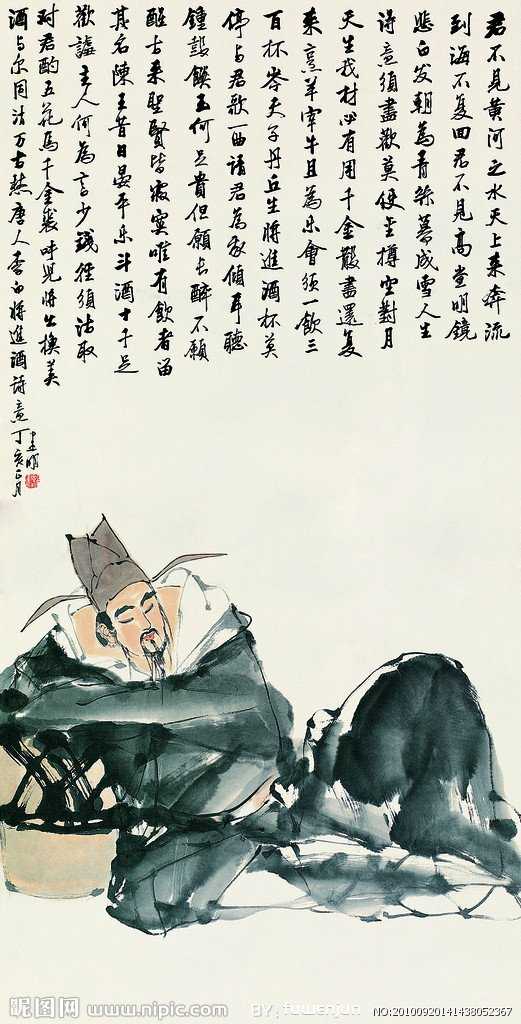 君不見黄河之水天上来奔流
到海不复回君不見高堂明鏡
悲白发朝為青絲暮成雪人生
得意須盡歡莫使金樽空對月
天生我材必有用千金散盡還复
来烹羊宰牛且為乐會須一飲三
百杯岑夫子丹丘生將進酒杯莫
停与君歌一曲请君為我傾耳聽
鍾鼓饌玉何足貴但願長醉不願
醒古来聖賢皆寂寞唯有飲者留
其名陳王昔日宴平乐斗酒十千
歡謔主人何為言少錢徑須沽取
对君酌五花馬千金裘呼兒將出換美
酒与尔同沽万古愁唐人李白將進酒诗意丁亥正月
建明
昵图网 www.nipic.com
BY: fuwenjun
NO:20100920141438052367